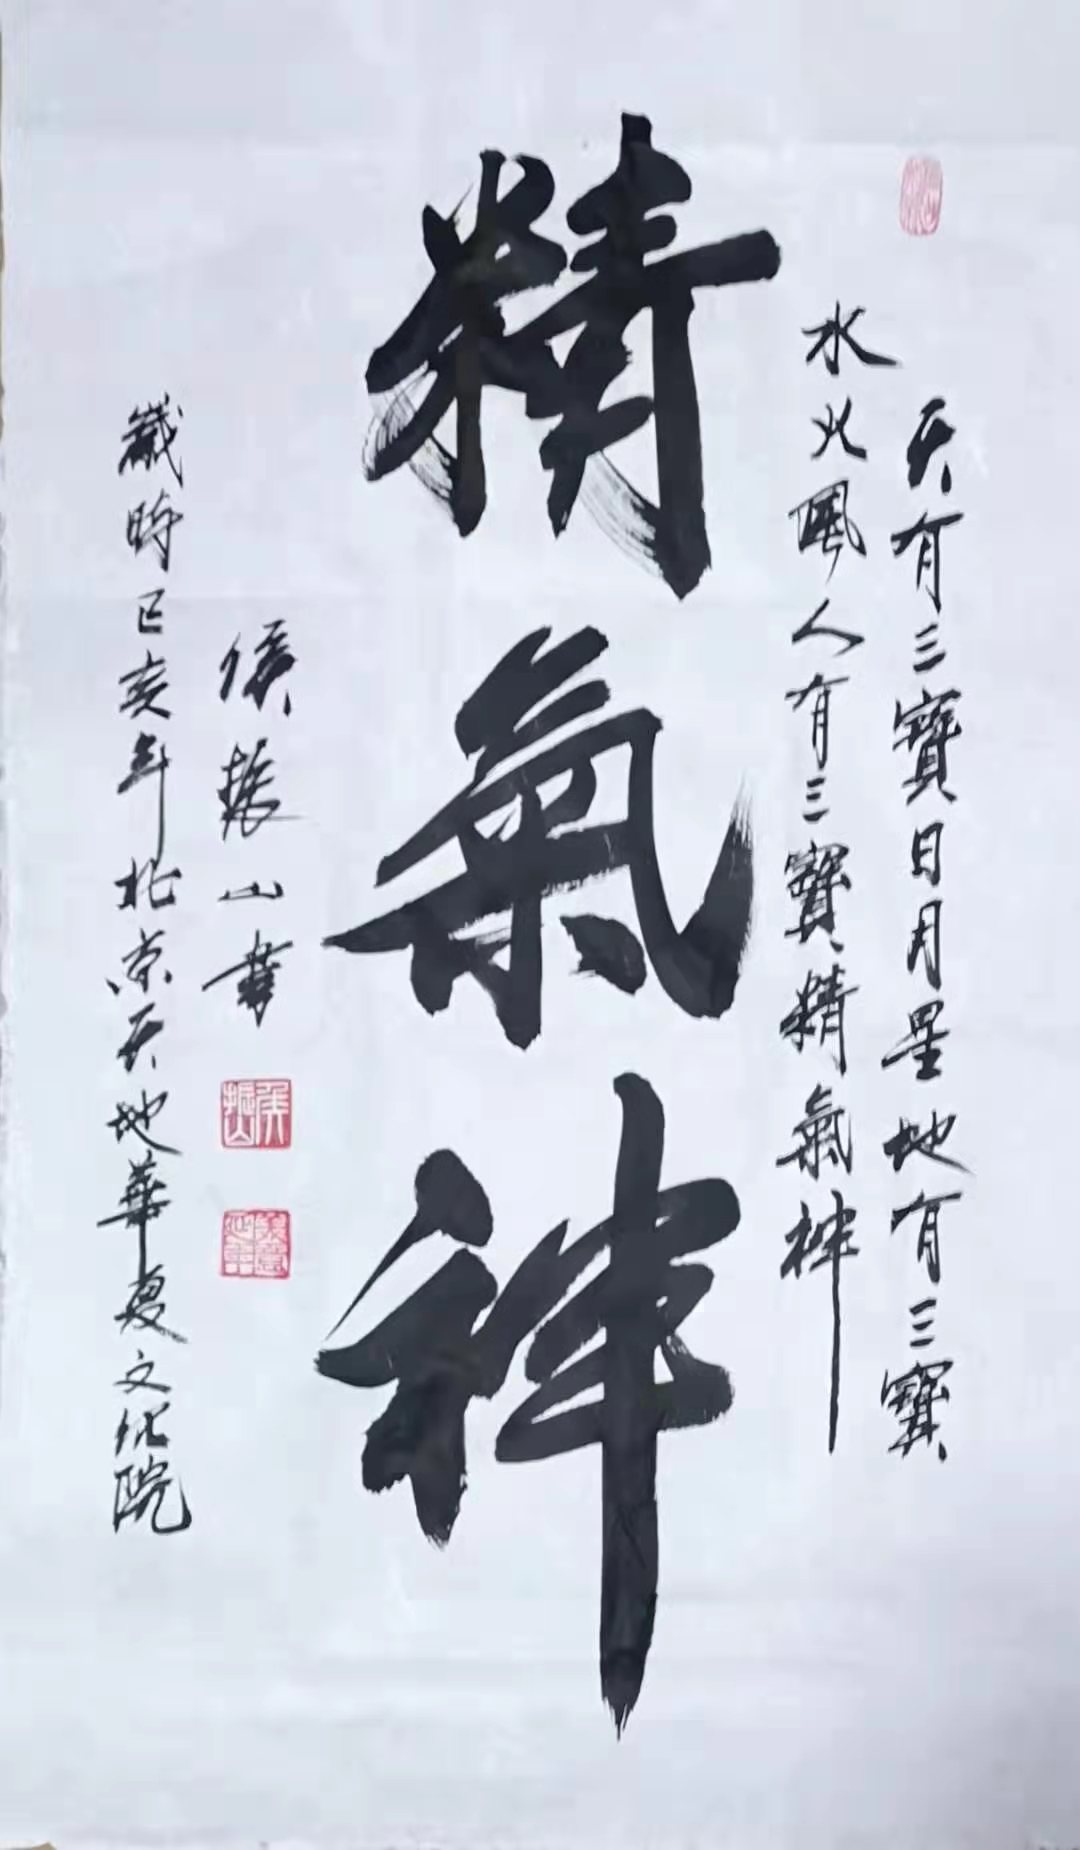 天有三寶日月星地有三寶
水火風人有三寶精氣神
精氣神
侯振山書
歲時己亥年北京天地華夏文化院
侯振山